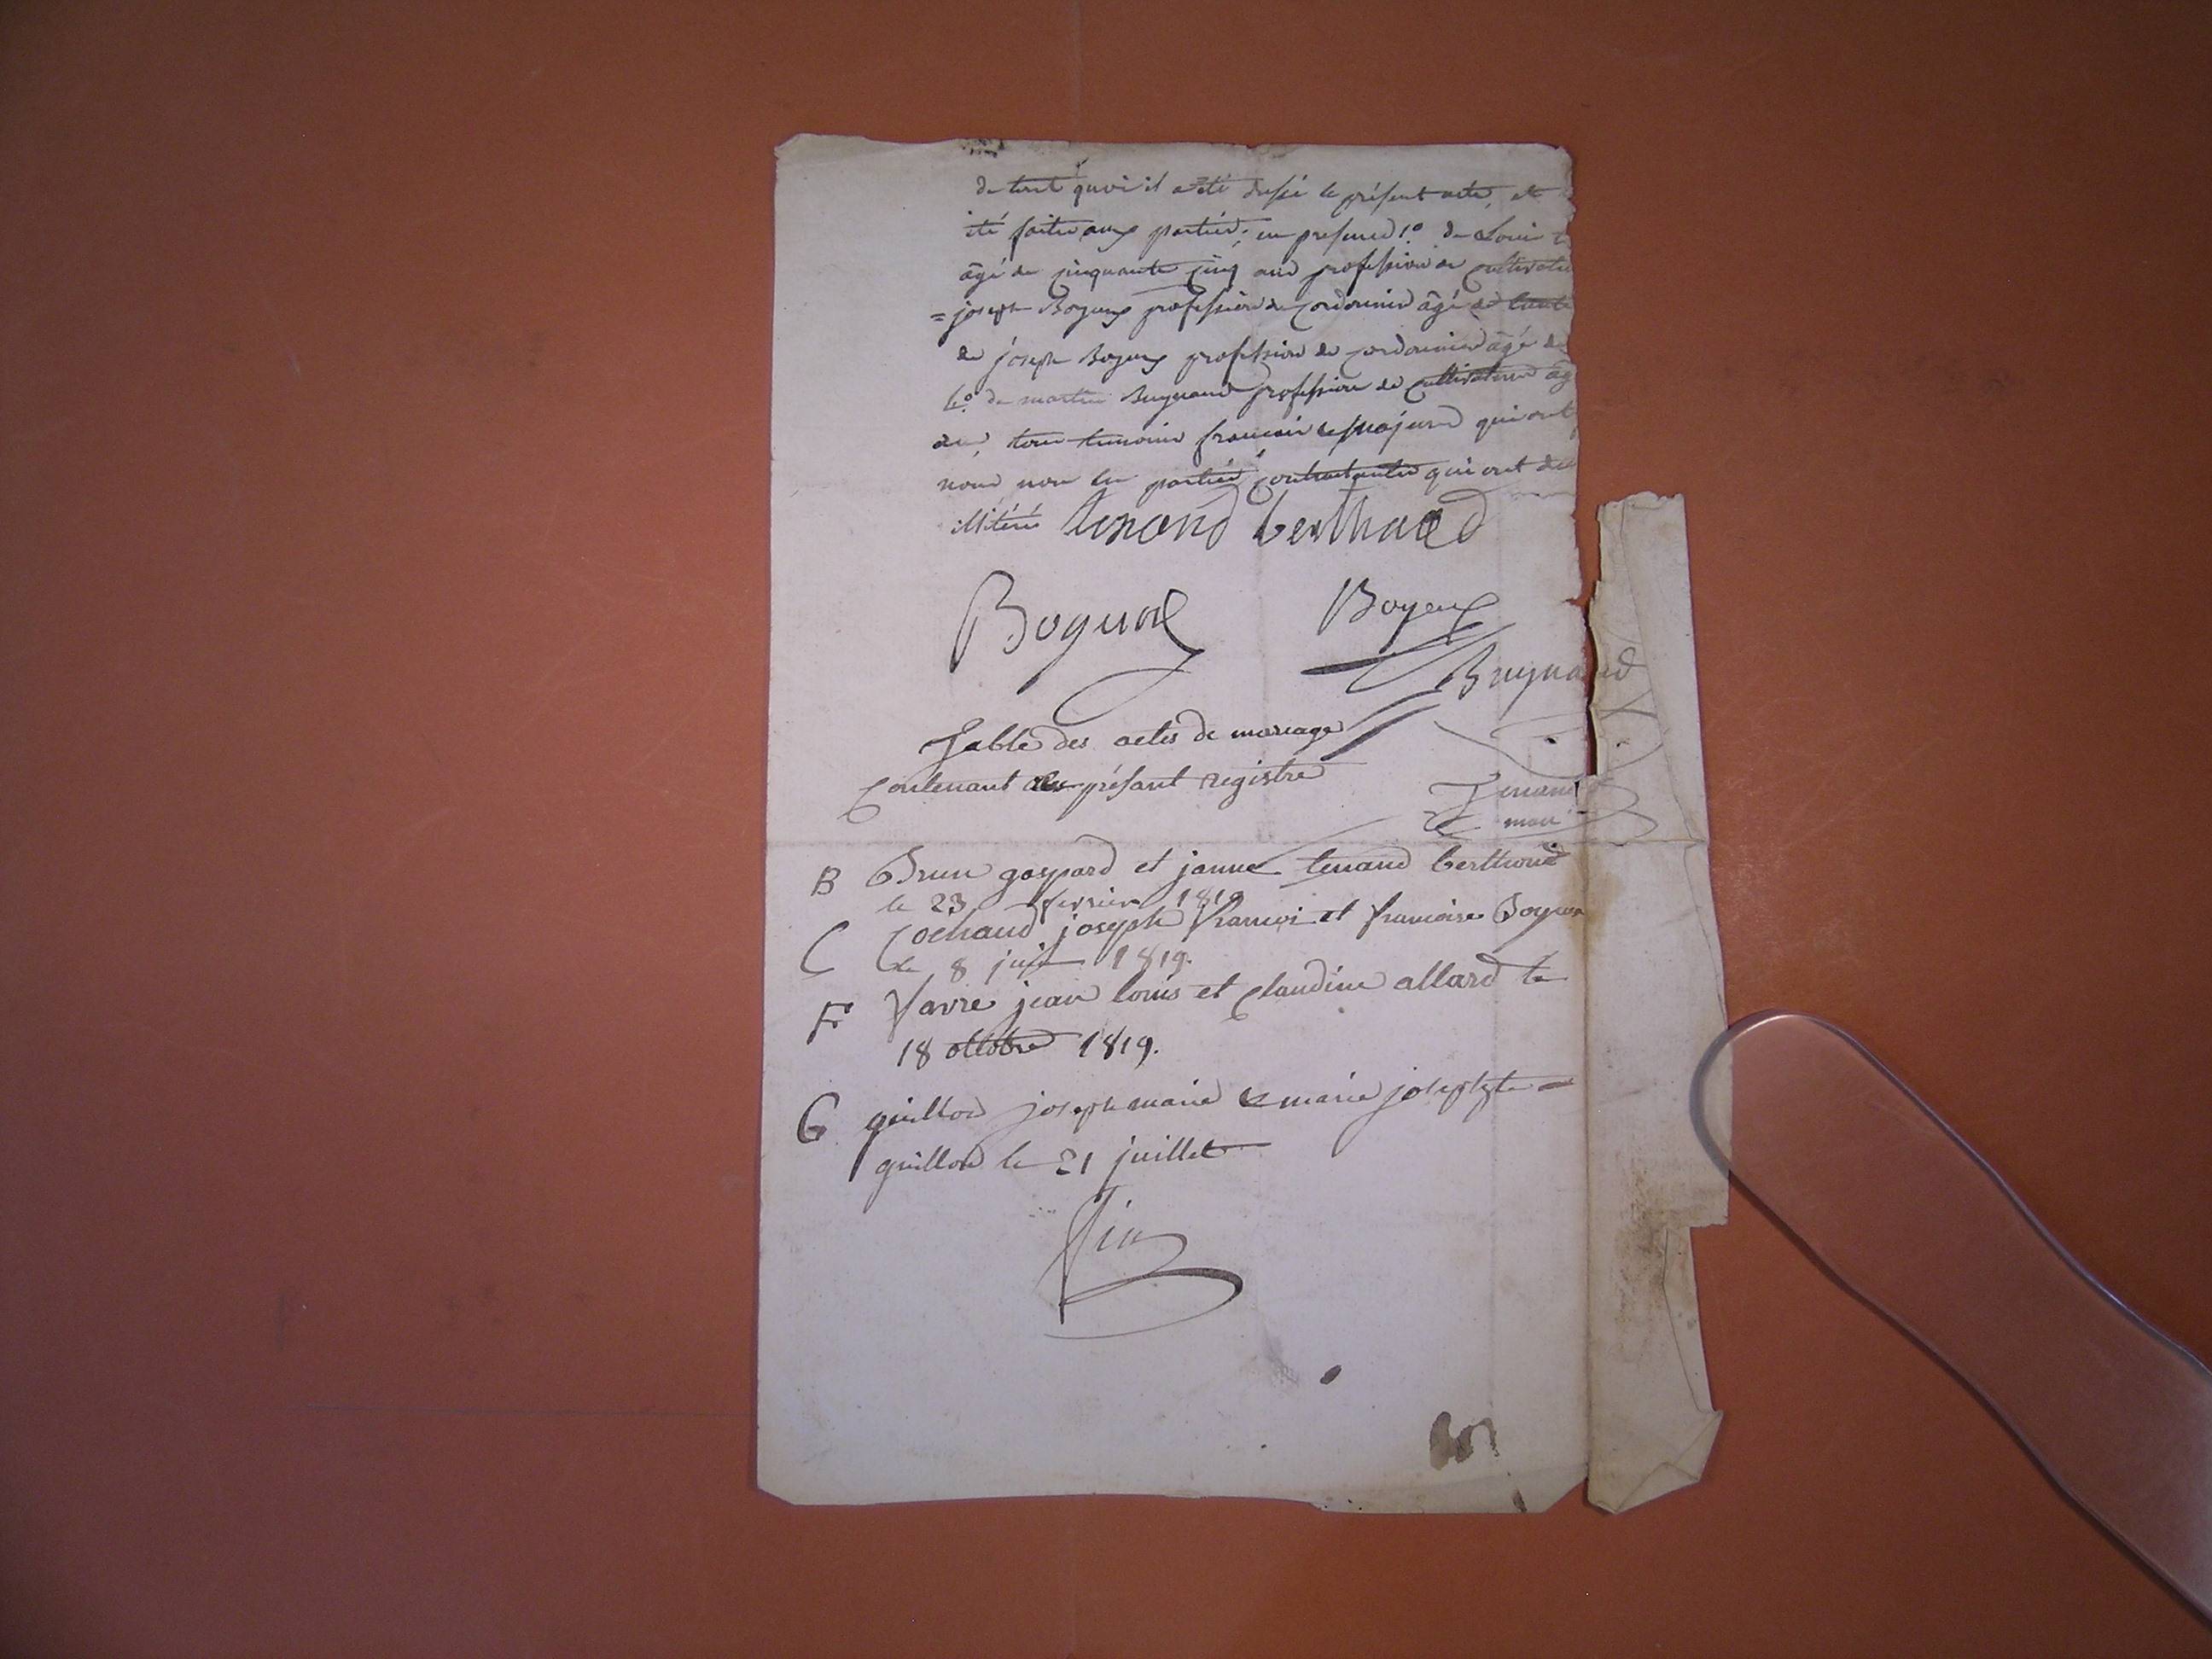 de tout quoi il a été dressé le présent acte, et
été faite aux parties; en presence 1.º de Louis
âgé de cinquante cinq ans profession de cultivateu
= joseph Boyeux profession de cordonnier âgé de
de joseph Boyeux profession de cordonnier âgé de
4.º de martin Buynand profession de cultivateur âg
ans, tous temoins francais & majeurs qui ont
nous non les parties contractantes qui ont de
illitéré tenand berthaud
Boyeux Boyeux
Buynand
Table des actes de mariage
Contenant au présant registre
Tenand
maire
B Brun gaspard et janne tenand berthoud
le 23 fevrier 1819
C Cochaud joseph Francoi et francoise Boyeux
le 8 juin 1819.
F Favre jean louis et Claudine allard le
18 octobre 1819.
G guillod joseph marie & marie josephte
guillod le 21 juillet
Fin